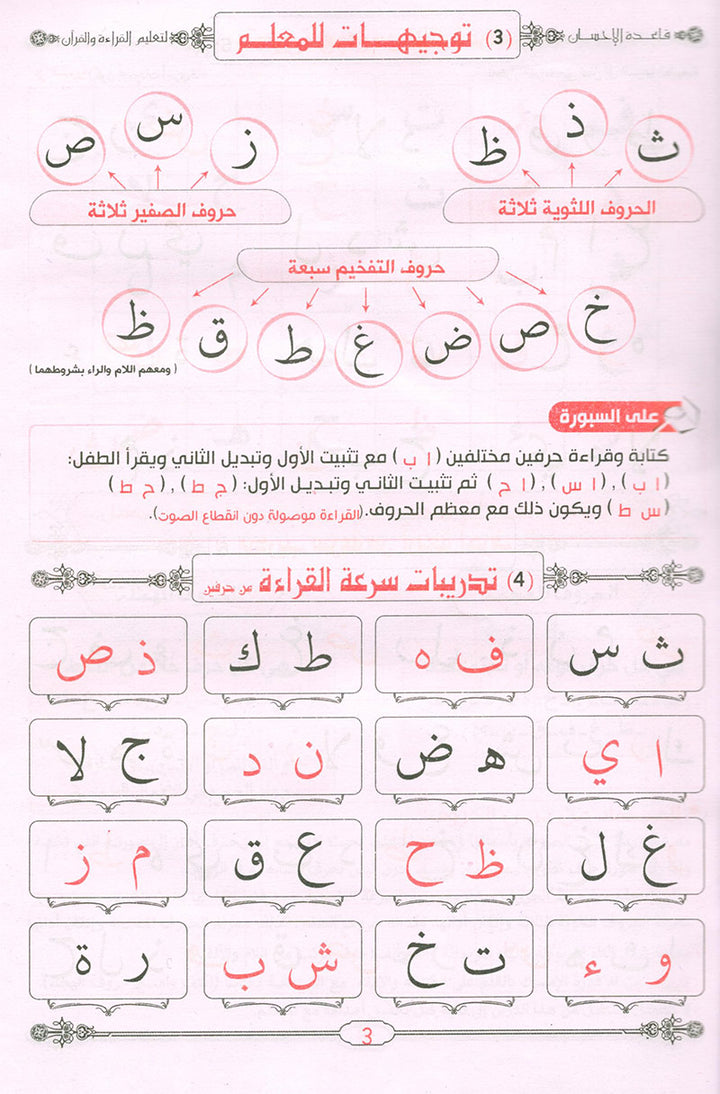 قاعدة الإحسان
(3) توجيهات للمعلم
لتعليم القراءة والقرآن
ث ذ ظ
الحروف اللثوية ثلاثة
ز س ص
حروف الصفير ثلاثة
حروف التفخيم سبعة
خ ص ض غ ط ق ظ
( ومعهم اللام والراء بشروطهما )
على السبورة
كتابة وقراءة حرفين مختلفين ( ا ب ) مع تثبيت الأول وتبديل الثاني ويقرأ الطفل:
( ا ب ) , ( ا س ) , ( ا ح ) ثم تثبيت الثاني وتبديل الأول: ( ج ط ) , ( ح ط )
( س ط ) ويكون ذلك مع معظم الحروف. (القراءة موصولة دون انقطاع الصوت).
(4) تدريبات سرعة القراءة عن حرفين
ث س ف ه ط ك ذ ص
ا ي ه ض ن د ج لا
غ ل ظ ح ع ق م ز
و ء ت خ ش ب ر ة
3